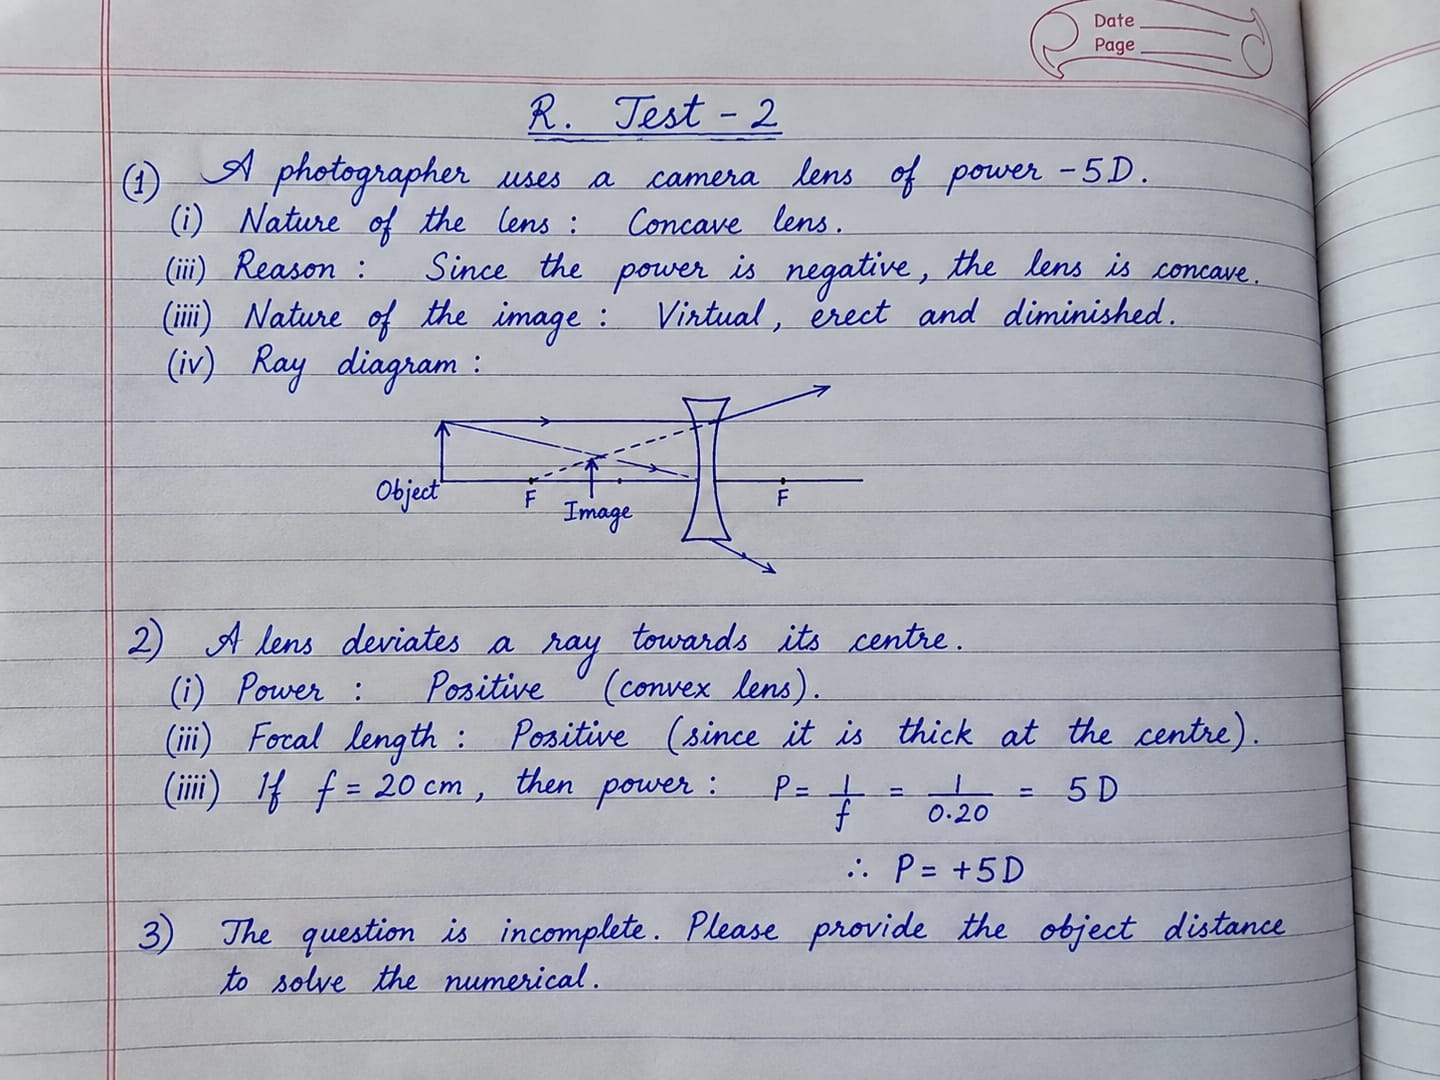 Date
Page
R. Test - 2
(1) A photographer uses a camera lens of power -5D.
(i) Nature of the lens : Concave lens.
(iii) Reason : Since the power is negative, the lens is concave.
(iiii) Nature of the image : Virtual, erect and diminished.
(iv) Ray diagram :
Object F Image F
2) A lens deviates a ray towards its centre.
(i) Power : Positive (convex lens).
(iii) Focal length : Positive (since it is thick at the centre).
(iiii) If f = 20 cm, then power : P = 1/f = 1/0.20 = 5 D
∴ P = +5D
3) The question is incomplete. Please provide the object distance
to solve the numerical.